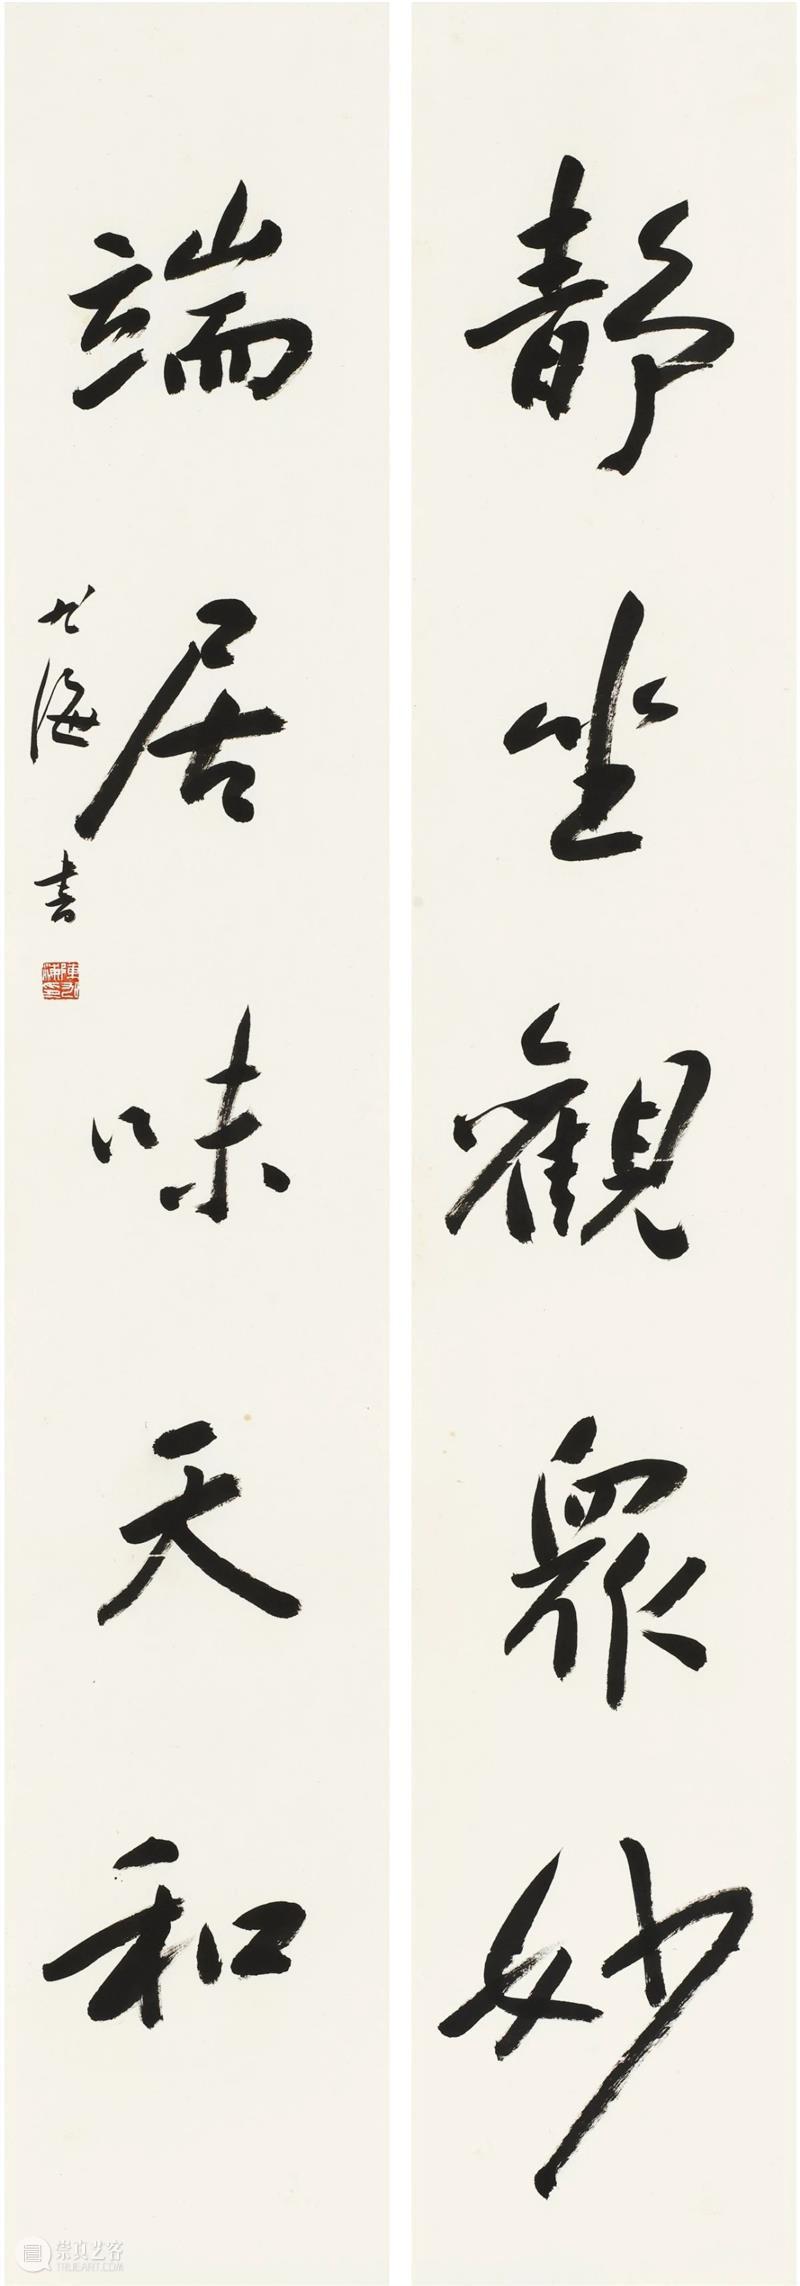 靜坐觀眾妙
端居味天和
海書
崇真艺客
TRUEART.COM